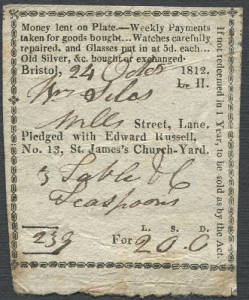 Money lent on Plate.—Weekly Payments
taken for goods bought...Watches carefully
repaired. and Glasses put in at 5d. each...
Old Silver, &c. bought or exchanged.
Bristol, 24 Octob 1812.
L. II.
Wm Silas
Wells Street, Lane.
Pledged with Edward Russell,
No. 13, St. James's Church-Yard.
3 Table & 6
Teaspoons
L. S. D.
239 For 20.0
If not redeemed in 1 Year, to be sold as by the Act.